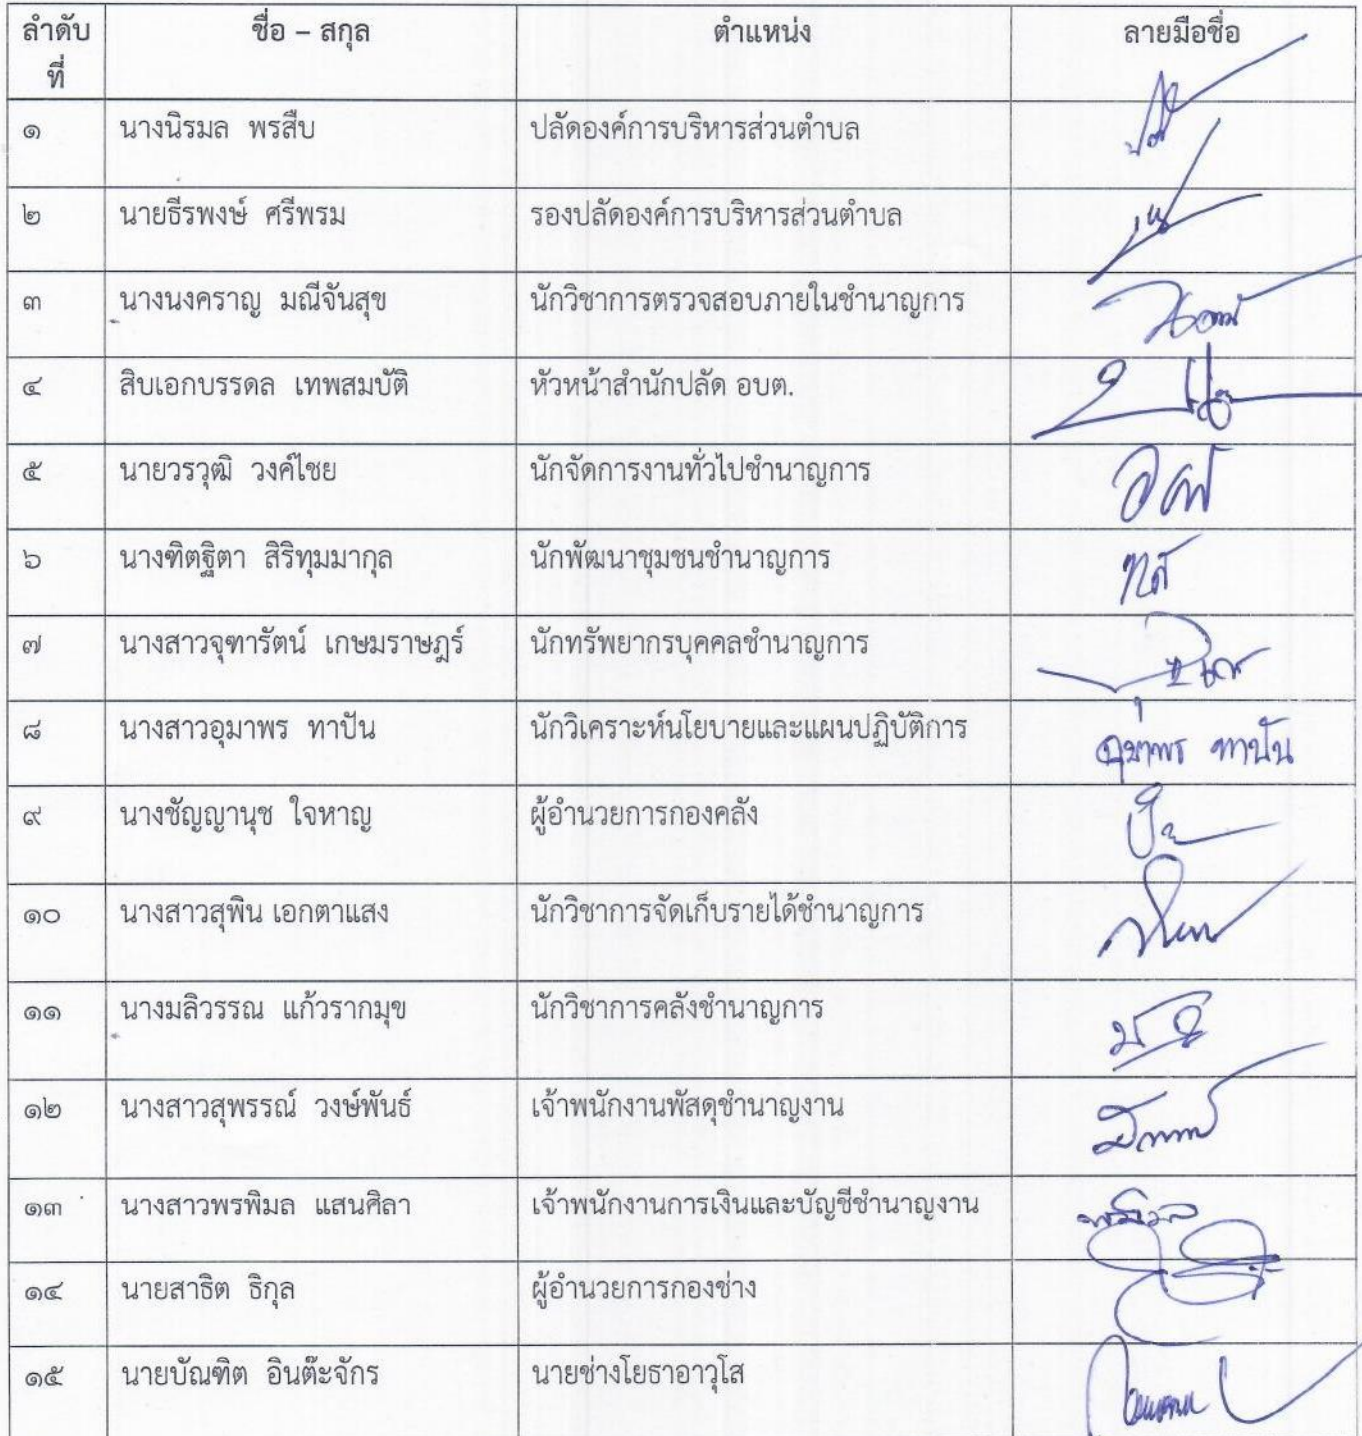 ลำดับ ชื่อ – สกุล ตำแหน่ง ลายมือชื่อ
ที่
๑ นางนิรมล พรสืบ ปลัดองค์การบริหารส่วนตำบล
๒ นายธีรพงษ์ ศรีพรม รองปลัดองค์การบริหารส่วนตำบล
๓ นางนงคราญ มณีจันสุข นักวิชาการตรวจสอบภายในชำนาญการ
๔ สิบเอกบรรดล เทพสมบัติ หัวหน้าสำนักปลัด อบต.
๕ นายวรวุฒิ วงค์ไชย นักจัดการงานทั่วไปชำนาญการ
๖ นางฑิตฐิตา สิริทุมมากุล นักพัฒนาชุมชนชำนาญการ
๗ นางสาวจุฑารัตน์ เกษมราษฎร์ นักทรัพยากรบุคคลชำนาญการ
๘ นางสาวอุมาพร ทาปัน นักวิเคราะห์นโยบายและแผนปฏิบัติการ อุมาพร ทาปัน
๙ นางชัญญานุช ใจหาญ ผู้อำนวยการกองคลัง
๑๐ นางสาวสุพิน เอกตาแสง นักวิชาการจัดเก็บรายได้ชำนาญการ
๑๑ นางมลิวรรณ แก้วรากมุข นักวิชาการคลังชำนาญการ
๑๒ นางสาวสุพรรณ์ วงษ์พันธ์ เจ้าพนักงานพัสดุชำนาญงาน
๑๓ นางสาวพรพิมล แสนศิลา เจ้าพนักงานการเงินและบัญชีชำนาญงาน
๑๔ นายสาธิต ธิกุล ผู้อำนวยการกองช่าง
๑๕ นายบัณฑิต อินต๊ะจักร นายช่างโยธาอาวุโส